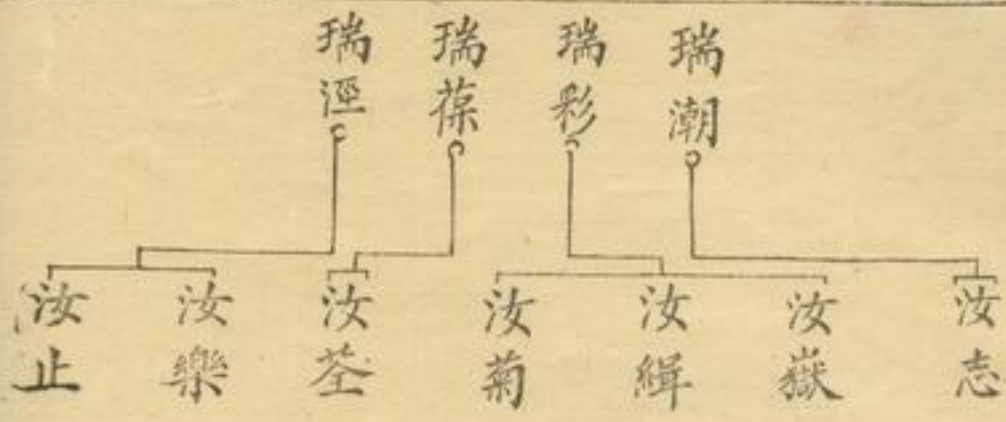 瑞潮
瑞彩
瑞葆
瑞涇
汝志
汝嶽
汝緝
汝菊
汝荃
汝樂
汝止